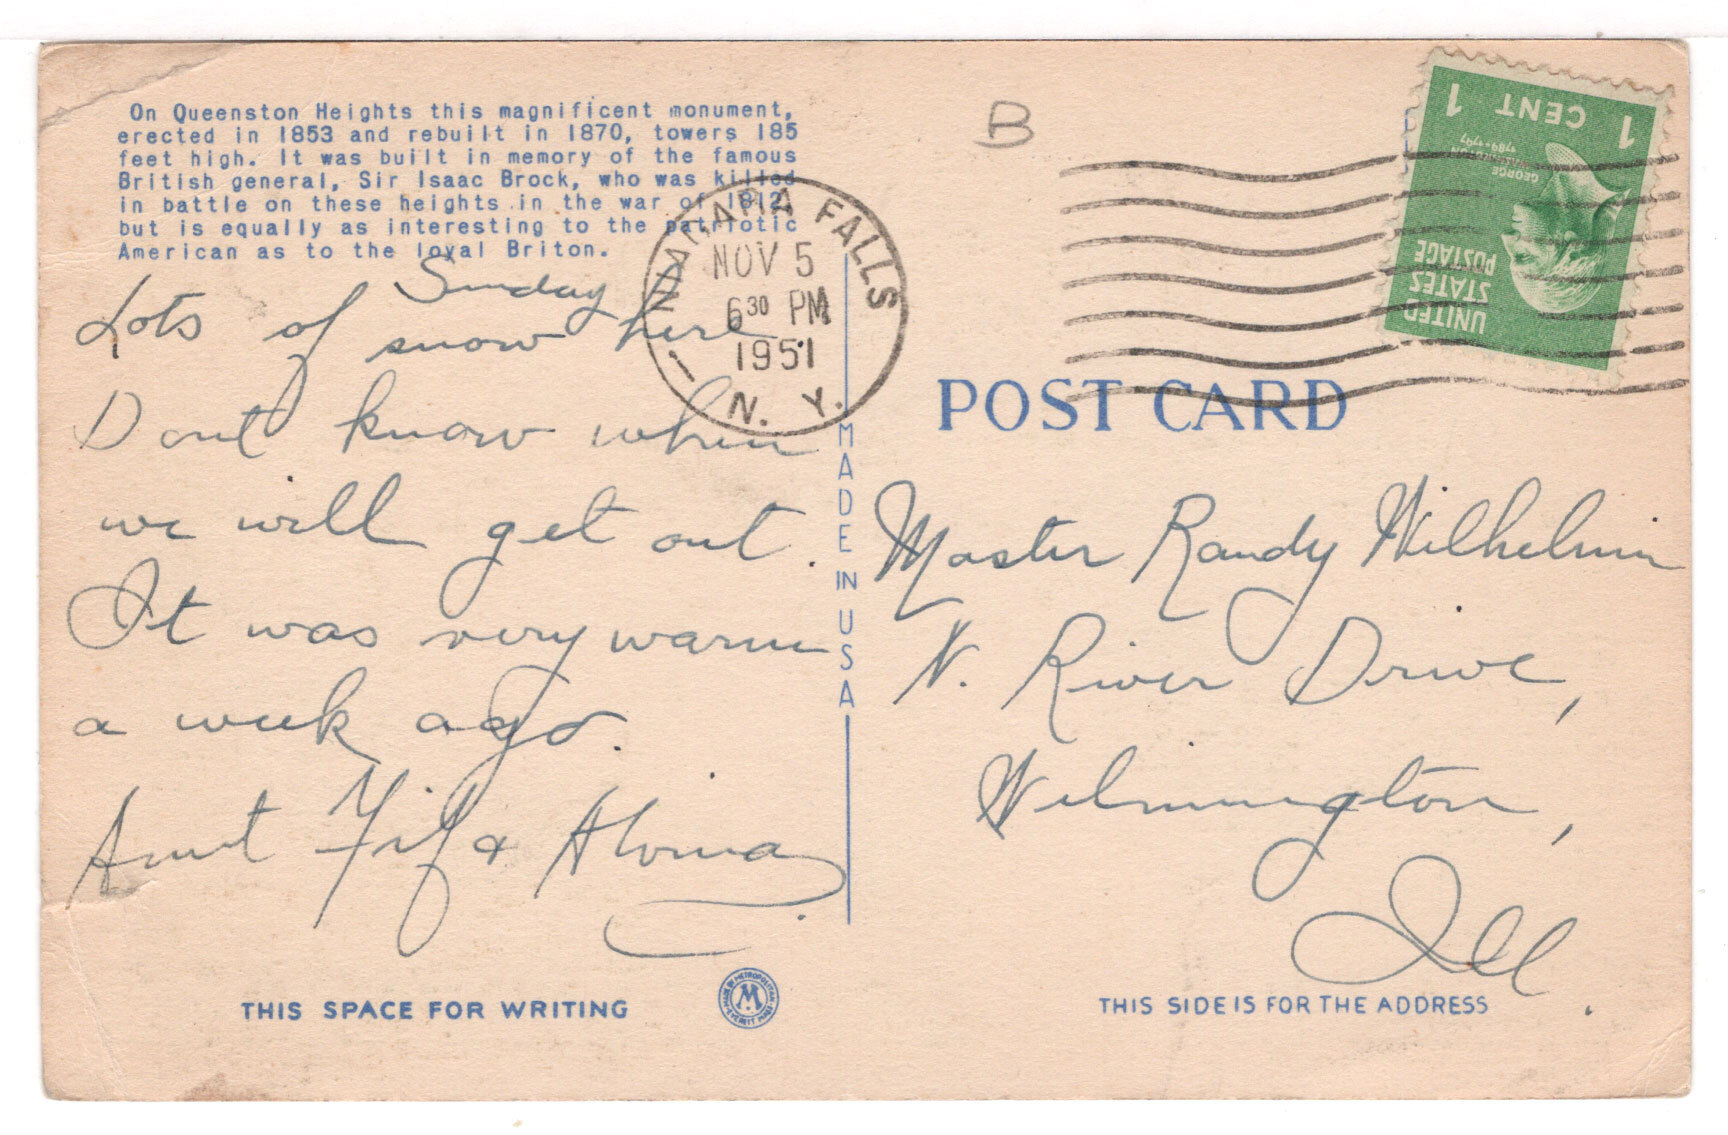 On Queenston Heights this magnificent monument,
erected in 1853 and rebuilt in 1870, towers 185
feet high. It was built in memory of the famous
British general, Sir Isaac Brock, who was killed
in battle on these heights in the war of 1812,
but is equally as interesting to the patriotic
American as to the loyal Briton.
Sunday
Lots of snow here.
Dont know when
we will get out.
It was very warm
a week ago.
Aunt &
THIS SPACE FOR WRITING
MADE BY METROPOLITAN
EVERETT MASS.
M
MADE IN USA
NIAGARA FALLS
NOV 5
6 30 PM
1951
N. Y.
B
1 CENT 1
GEORGE
WASHINGTON
1789-1797
UNITED
STATES
POSTAGE
POST CARD
Master Randy Wilhelmi
N. River Drive,
Wilmington,
Ill.
THIS SIDE IS FOR THE ADDRESS